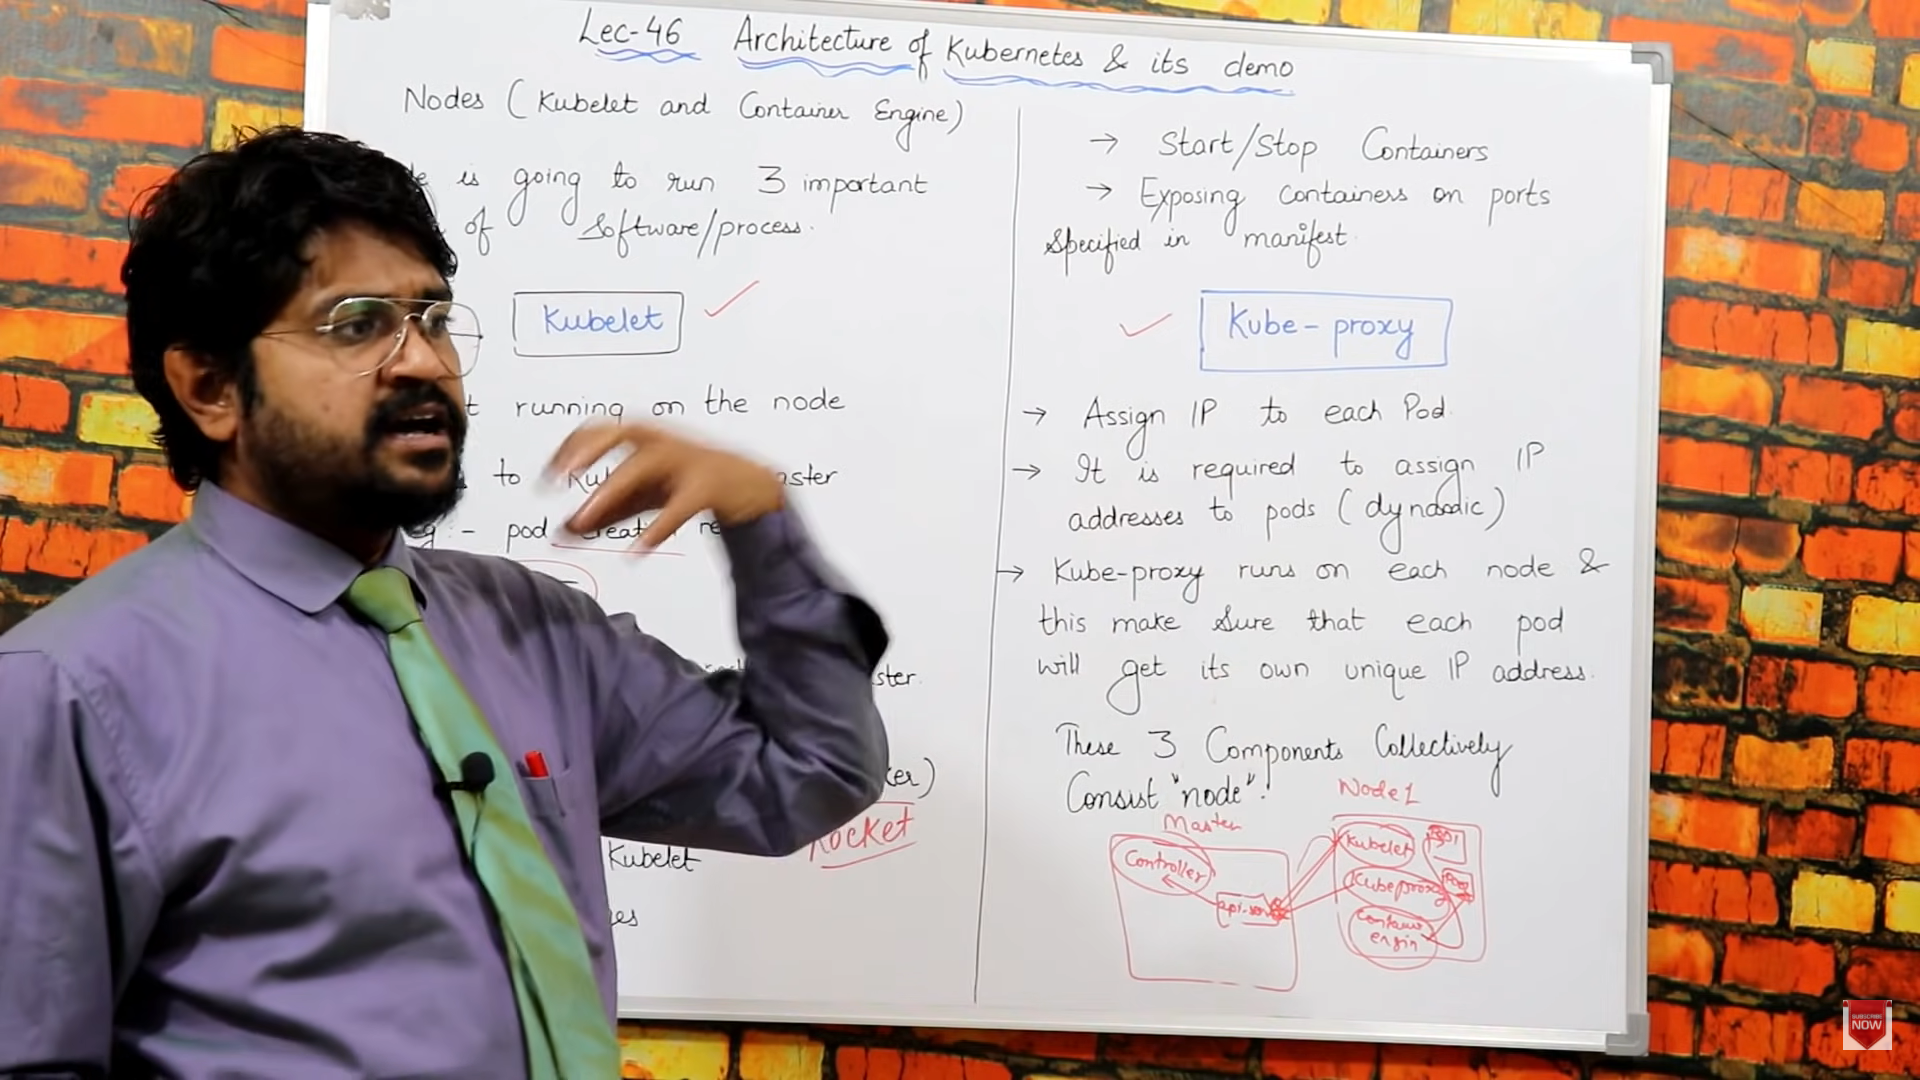 Lec-46 Architecture of Kubernetes & its demo
Nodes (Kubelet and Container Engine)
is going to run 3 important
of Software/process.
Kubelet
running on the node
to aster
eg:- pod
ster.
ker)
Rocket
Kubelet
→ Start/Stop Containers
→ Exposing containers on ports
Specified in manifest
Kube-proxy
→ Assign IP to each Pod.
→ It is required to assign IP
addresses to pods (dynamic)
→ Kube-proxy runs on each node &
this make sure that each pod
will get its own unique IP address.
These 3 Components Collectively
Consist "node".
Master
Controller
Node1
Kubelet
Kubeproxy
SUBSCRIBE
NOW